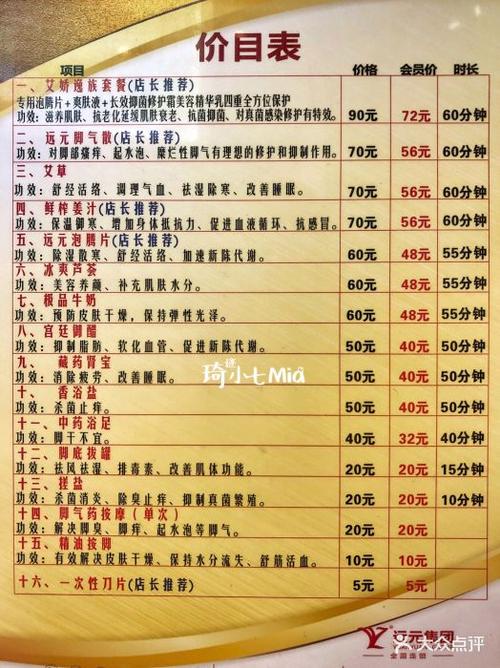 价目表
项目 价格 会员价 时长
一、艾娇逸族套餐(店长推荐)
专用泡腾片+爽肤液+长效抑菌修护霜美容精华乳四重全方位保护
功效：滋养肌肤、抗老化延缓肌肤衰老、抗菌抑菌、对真菌感染修护有特效。 90元 72元 60分钟
二、远元脚气散(店长推荐)
功效：对脚部瘙痒、起水泡、糜烂性脚气有理想的修护和抑制作用。 70元 56元 60分钟
三、艾草
功效：舒经活络、调理气血、祛湿除寒、改善睡眠。 70元 56元 60分钟
四、鲜榨姜汁(店长推荐)
功效：保温御寒、增加身体抵抗力、促进血液循环、抗感冒。 70元 56元 60分钟
五、远元泡腾片(店长推荐)
功效：除湿散寒、舒经活络、加速新陈代谢。 60元 48元 55分钟
六、冰爽芦荟
功效：美容养颜、补充肌肤水分。 60元 48元 55分钟
七、极品牛奶
功效：预防皮肤干燥，保持弹性光泽。 60元 48元 55分钟
八、宫廷御醋
功效：抑制脂肪、软化血管、促进新陈代谢。 50元 40元 50分钟
九、藏药肾宝
功效：消除疲劳、改善睡眠。 50元 40元 50分钟
十、香浴盐
功效：杀菌止痒。 50元 40元 50分钟
十一、中药浴足
功效：脚干不宜。 40元 32元 40分钟
十二、脚底拔罐
功效：祛风祛湿、排毒素、改善肌体功能。 20元 20元 15分钟
十三、搓盐
功效：杀菌消炎、除臭止痒、抑制真菌繁殖。 20元 20元 10分钟
十四、脚气药按摩(单次)
功效：解决脚臭、脚痒、起水泡等脚气。 20元 20元
十五、精油按脚
功效：有效解决皮肤干燥、保持水分流失、舒筋活血。 10元 10元
十六、一次性刀片(店长推荐) 5元 5元
琦小七Mia
远元集团
全国连锁
大众点评